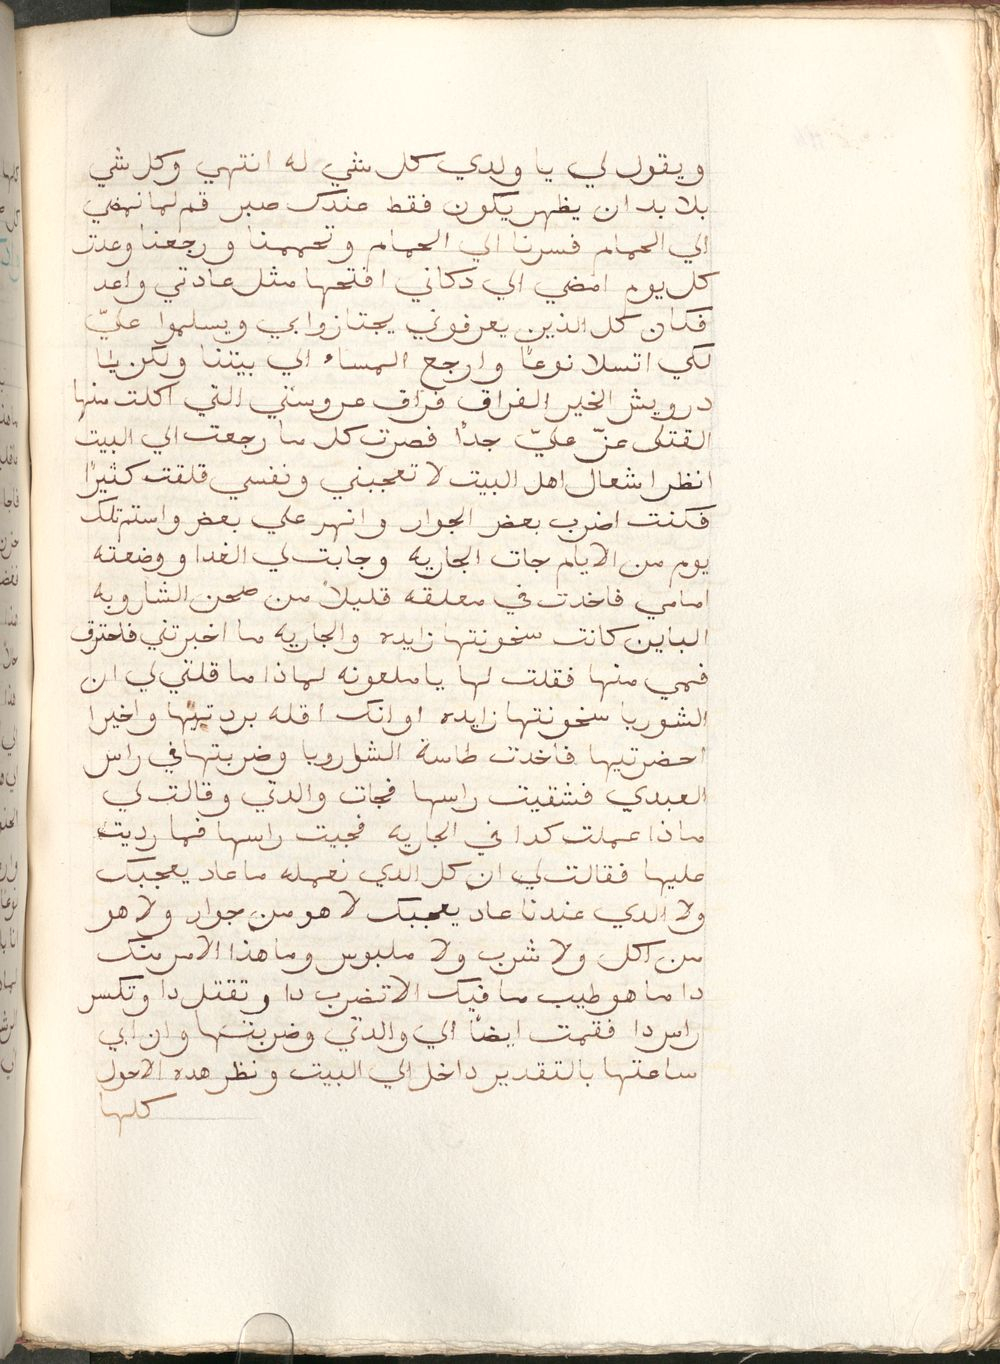 ويقول لي يا ولدي كل شي له انتهي وكل شي
بلا بد ان يظهر يكون فقط عندك صبر قم لما نمضي
الي الحمام فسرنا الي الحمام وتحممنا ورجعنا وعدت
كل يوم امضي الي دكاني افتحها مثل عادتي واعد
فكان كل الذين يعرفوني يجتازوا بي ويسلموا عليّ
لكي اتسلا نوعاً وارجع المساء الي بيتنا ولكن يا
درويش الخير الفراق فراق عروستي التي اكلت منها
القتلى عزّ عليّ جداً فصرت كل ما رجعت الي البيت
انظر اشعال اهل البيت لا تعجبني ونفسي قلقت كثيراً
فكنت اضرب بعض الجوار وانهر علي بعض واستم تلك
يوم من الايام جات الجاريه وجابت لي الغدا ووضعته
امامي فاخدت في معلقه قليلاً من صحن الشاروبه
الباين كانت سخونتها زايده والجاريه ما اخبرتني فاحترق
فمي منها فقلت لها يا ملعونه لماذا ما قلتي لي ان
الشوربا سخونتها زايده او انك اقله بردتيها واخيرا
احضرتيها فاخدت طاسة الشوروبا وضربتها في راس
العبدي فشقيت راسها فجات والدتي وقالت لي
ماذا عملت كدا في الجاريه فجيت راسها فما رديت
عليها فقالت لي ان كل الدي نعمله ما عاد يعجبك
ولا الدي عندنا عاد يعجبك لا هو من جوار ولا هو
من اكل ولا شرب ولا ملبوس وما هذا الامر منك
دا ما هو طيب ما فيك الا تضرب دا وتقتل دا وتكسر
راس دا فقمت ايضاً الي والدتي وضربتها وان ابي
ساعتها بالتقدير داخل الي البيت ونظر هده الاحول
كلها